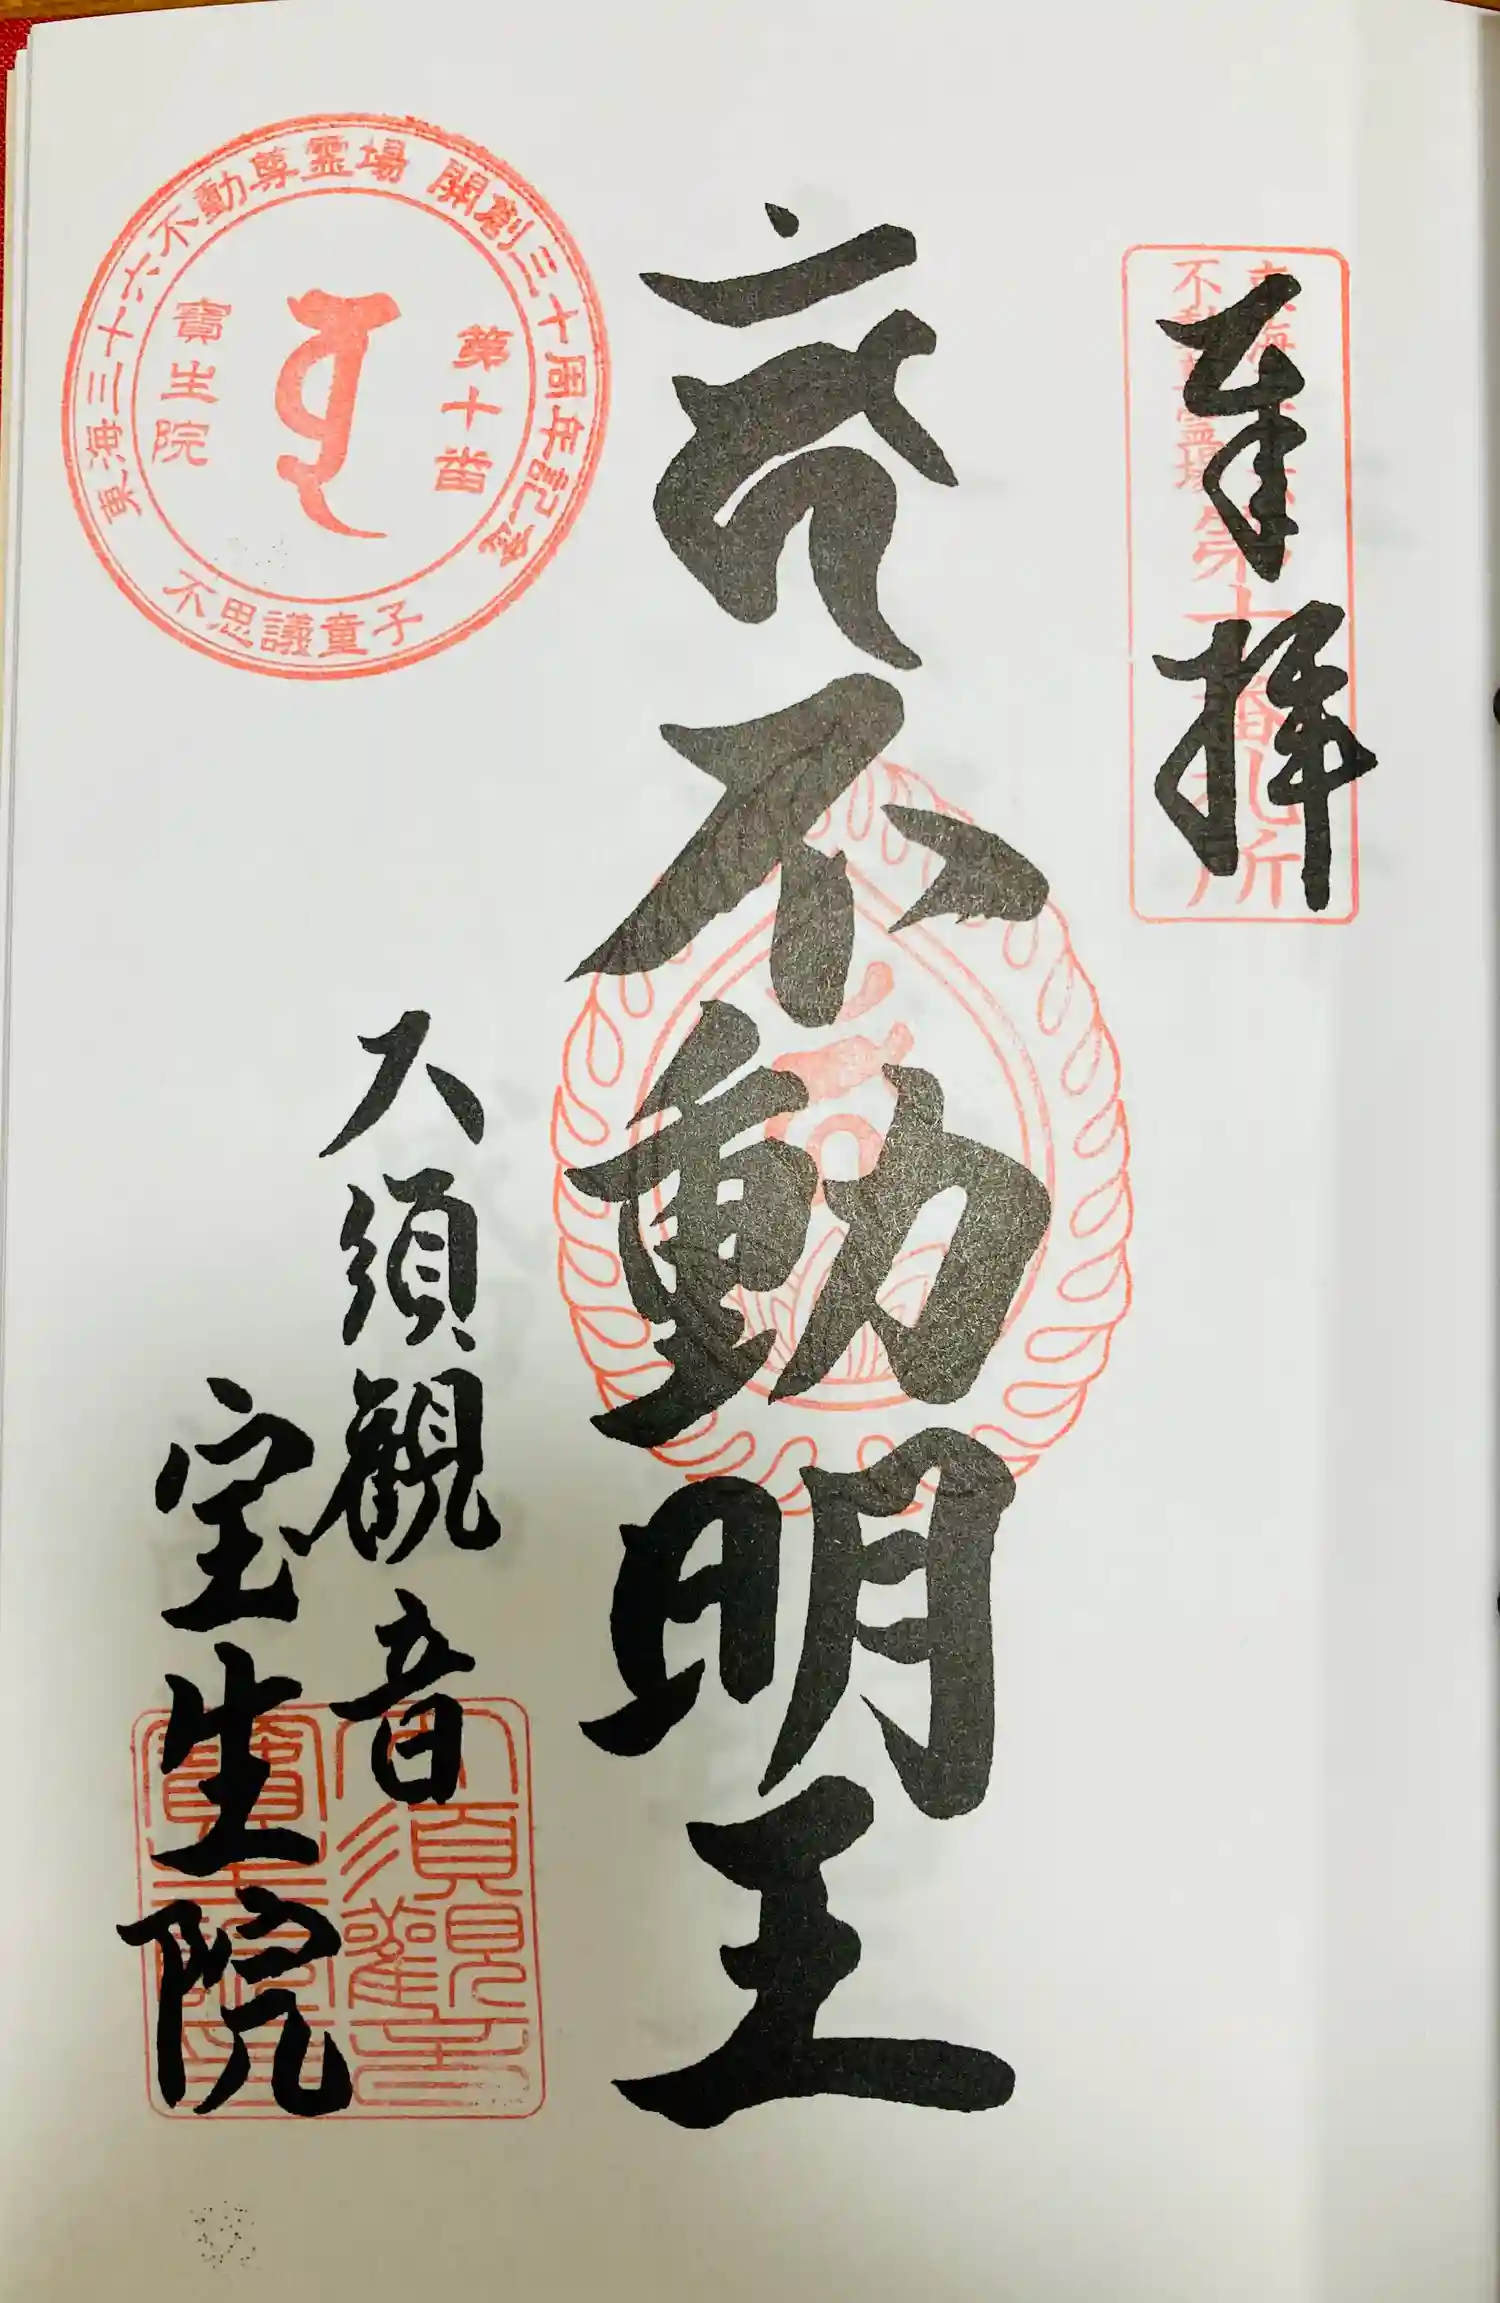 奉拝
東海三十六
不動尊霊場
第十番札所
不動明王
大須観音
宝生院
東海三十六不動尊霊場 開創三十周年記念
第十番
寳生院
不思議童子
大須観音
寳生院